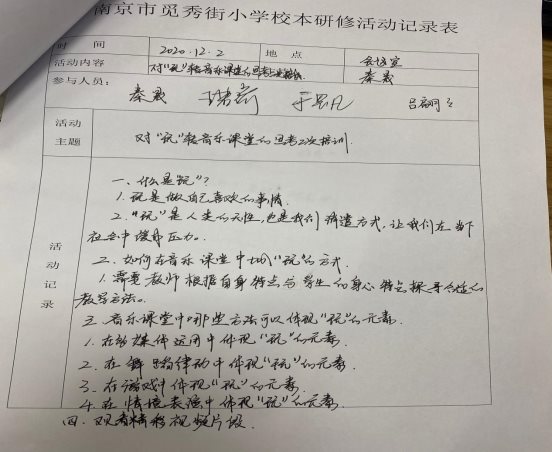 南京市觅秀街小学校本研修活动记录表
时 间 2020.12.2 地 点 会议室
活动内容 对“玩”转音乐课堂的思考 秦晟
参与人员:
秦晟
活动主题 对“玩”转音乐课堂的思考二次培训.
活动记录
一、什么是“玩”?
1.玩是做自己喜欢的事情.
2.“玩”是人类的天性,也是我们 方式,让我们在当下
社会中缓解压力。
二、如何在音乐课堂中 “玩”的方式.
1.需要教师根据自身特点与学生的身心特点探寻合适的
教学方法。
三、音乐课堂中哪些方法可以体现“玩”的元素.
1.在多媒体运用中体现“玩”的元素.
2.在舞蹈律动中体现“玩”的元素.
3.在游戏中体现“玩”的元素.
4.在情境表演中体现“玩”的元素.
四.观看精彩视频片段.